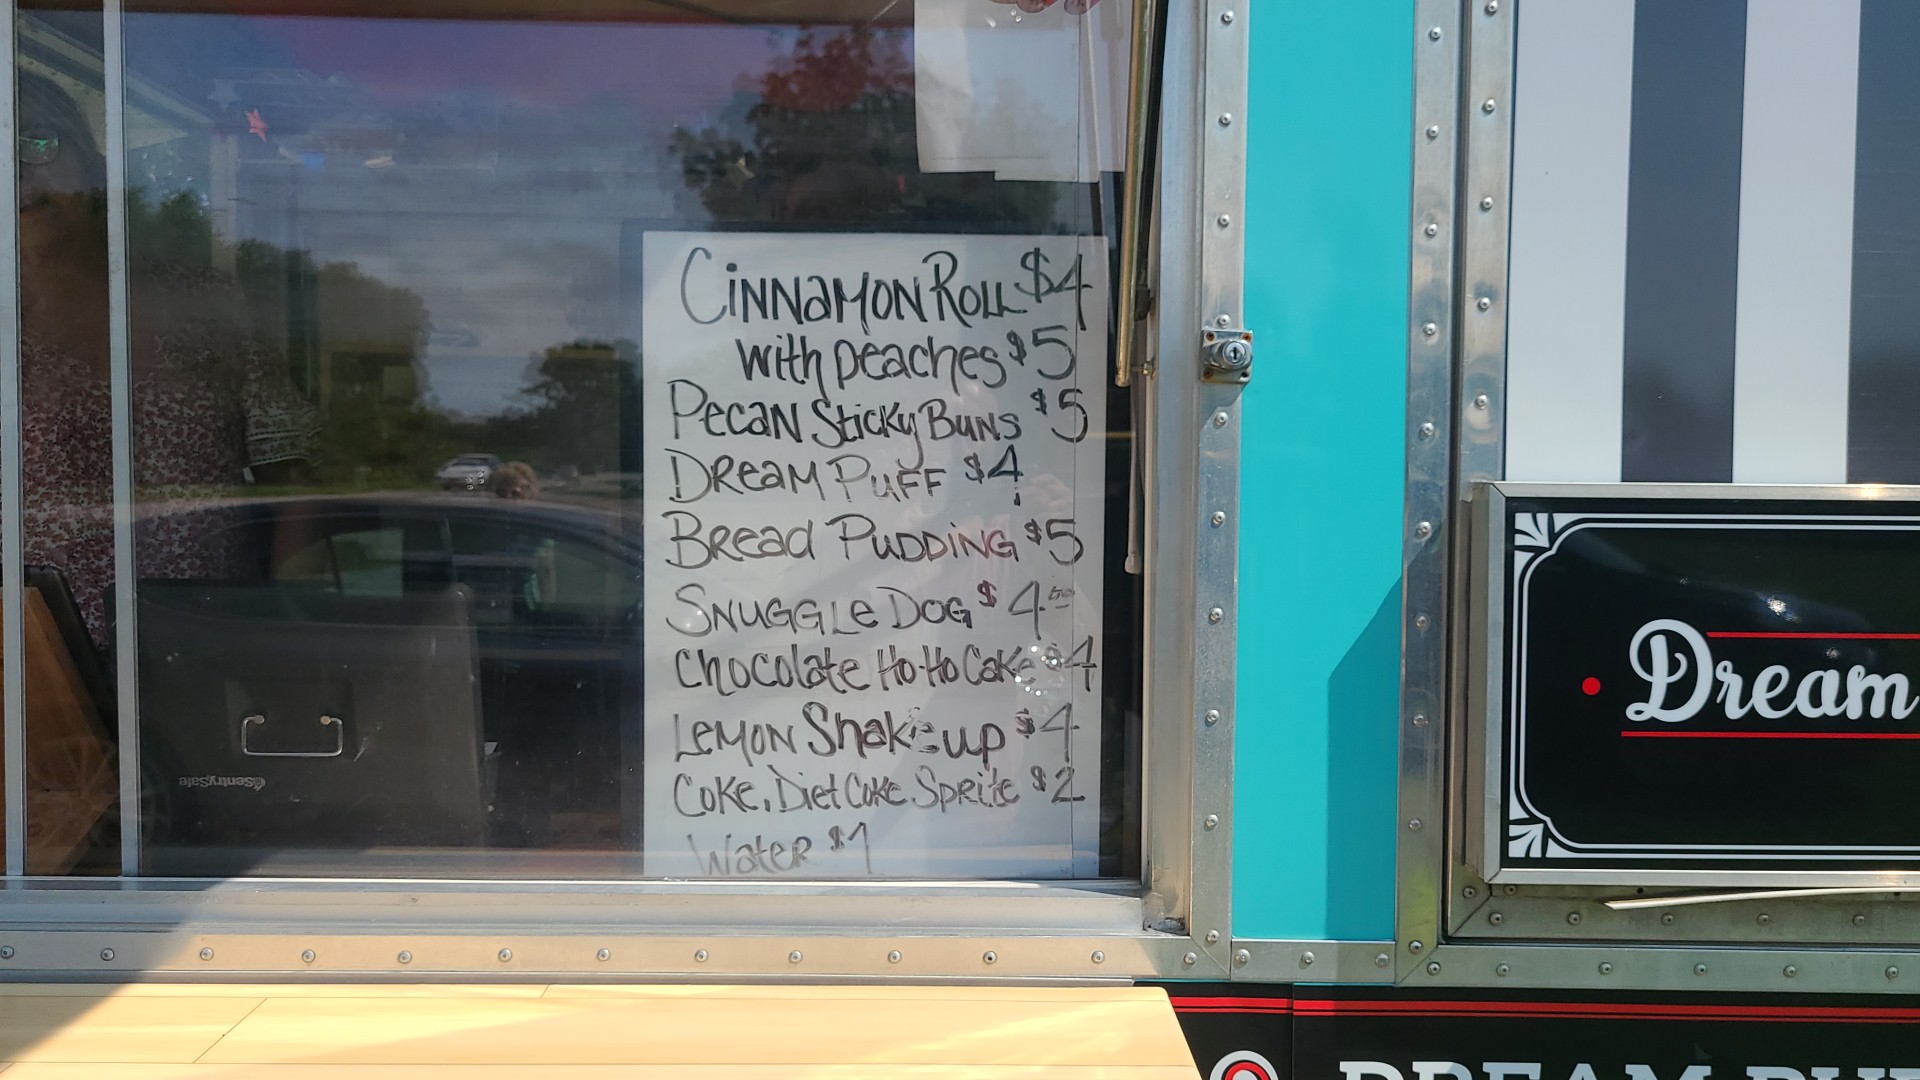 CiNNaMON ROLL $4
with peaches $5
PecaN Sticky BuNS $5
DReaM PuFF $4
BRead PuDDiNG $5
SNuGGLe DOG $4.50
Chocolate Ho-Ho Cake $4
LeMON Shake up $4
Coke, Diet Coke, Sprite $2
WateR $1
SentrySafe
Dream
DREAM